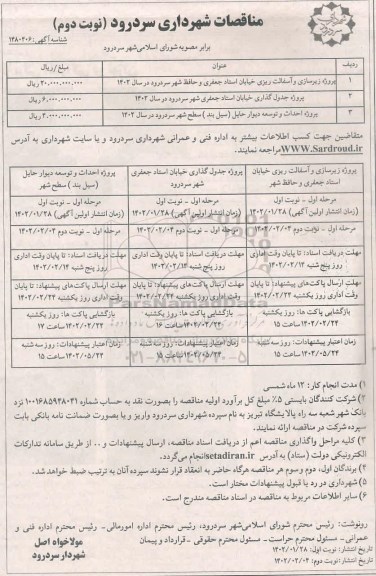 مناقصات شهرداری سردرود (نوبت دوم)
شناسه آگهی: ۱۳۸۰۲۰۶
برابر مصوبه شورای اسلامی شهر سردرود
ردیف عنوان مبلغ/ریال
۱ پروژه زیرسازی و آسفالت ریزی خیابان استاد جعفری و حافظ شهر سردرود در سال ۱۴۰۲ ۳۰.۰۰۰.۰۰۰.۰۰۰ ریال
۲ پروژه جدول گذاری خیابان استاد جعفری شهر سردرود در سال ۱۴۰۲ ۶.۰۰۰.۰۰۰.۰۰۰ ریال
۳ پروژه احداث و توسعه دیوار حایل (سیل بند) سطح شهر سردرود در سال ۱۴۰۲
متقاضین جهت کسب اطلاعات بیشتر به اداره فنی و عمرانی شهرداری سردرود و یا سایت شهرداری به آدرس
WWW.Sardroud.ir مراجعه نمایند.
پروژه زیرسازی و آسفالت ریزی خیابان استاد جعفری و حافظ شهر
پروژه جدول گذاری خیابان استاد جعفری شهر سردرود
پروژه احداث و توسعه دیوار حایل (سیل بند) سطح شهر
مرحله اول - نوبت اول (زمان انتشار اولین آگهی) ۱۴۰۲/۰۱/۲۸
مرحله اول - نوبت اول (زمان انتشار اولین آگهی) ۱۴۰۲/۰۱/۲۸
مرحله اول - نوبت اول (زمان انتشار اولین آگهی) ۱۴۰۲/۰۱/۲۸
مرحله اول - نوبت دوم ۱۴۰۲/۰۲/۰۴
مرحله اول - نوبت دوم ۱۴۰۲/۰۲/۰۴
مرحله اول - نوبت دوم ۱۴۰۲/۰۲/۰۴
مهلت دریافت اسناد: تا پایان وقت اداری روز پنج شنبه ۱۴۰۲/۰۲/۱۴
مهلت دریافت اسناد: تا پایان وقت اداری روز پنج شنبه
مهلت دریافت اسناد: تا پایان وقت اداری روز پنج شنبه ۱۴۰۲/۰۲/۱۴
مهلت ارسال پاکت‌های پیشنهاد: تا پایان وقت اداری روز یکشنبه
مهلت ارسال پاکت‌های پیشنهاد: تا پایان وقت اداری روز یکشنبه
مهلت ارسال پاکت‌های پیشنهاد: تا پایان وقت اداری روز یکشنبه
بازگشایی پاکت ها: روز یکشنبه ۱۴۰۲/۰۲/۲۴ ساعت ۱۵
بازگشایی پاکت ها: روز یکشنبه ۱۴۰۲/۰۲/۲۴ ساعت ۱۶
بازگشایی پاکت ها: روز یکشنبه ۱۴۰۲/۰۲/۲۴ ساعت ۱۷
زمان اعتبار پیشنهادات: روز سه شنبه ۱۴۰۲/۰۵/۲۴ ساعت ۱۵
زمان اعتبار پیشنهادات: روز سه شنبه ۱۴۰۲/۰۵/۲۴ ساعت ۱۵
زمان اعتبار پیشنهادات: روز سه شنبه ۱۴۰۲/۰۵/۲۴ ساعت ۱۵
۱) مدت انجام کار: ۱۲ ماه شمسی
۲) شرکت کنندگان بایستی ۵٪ مبلغ کل برآورد اولیه مناقصه را بصورت نقد به حساب شماره ۱۰۰۱۶۸۵۹۴۸۰۳۱ نزد
بانک شهر شعبه سه راه پالایشگاه تبریز به نام سپرده شهرداری سردرود واریز و یا بصورت ضمانت نامه بانکی بابت
سپرده شرکت در مناقصه ارائه نمایند.
۳) کلیه مراحل واگذاری مناقصه اعم از دریافت اسناد مناقصه، ارسال پیشنهادات و .. از طریق سامانه تدارکات
الکترونیکی دولت (ستاد) به آدرس setadiran.ir انجام می‌گردد.
۴) برندگان اول، دوم و سوم هر مناقصه هرگاه حاضر به انعقاد قرار نشوند سپرده آنان به ترتیب ضبط خواهد شد.
۵) شهرداری در رد یا قبول پیشنهادات مختار است.
۶) سایر اطلاعات مربوط به مناقصه در اسناد مناقصه مندرج است.
رونوشت: رئیس محترم شورای اسلامی شهر سردرود، رئیس محترم اداره امورمالی- رئیس محترم اداره فنی و
عمرانی- مسئول محترم حراست- مسئول محترم حقوقی- قرارداد و پیمان
تاریخ انتشار نوبت اول: ۱۴۰۲/۰۱/۲۸
تاریخ انتشار نوبت دوم: ۱۴۰۲/۰۲/۰۴
مولاخواه اصل
شهردار سردرود
۰۲۱-۸۸۳۴۹۶۷۰-۵